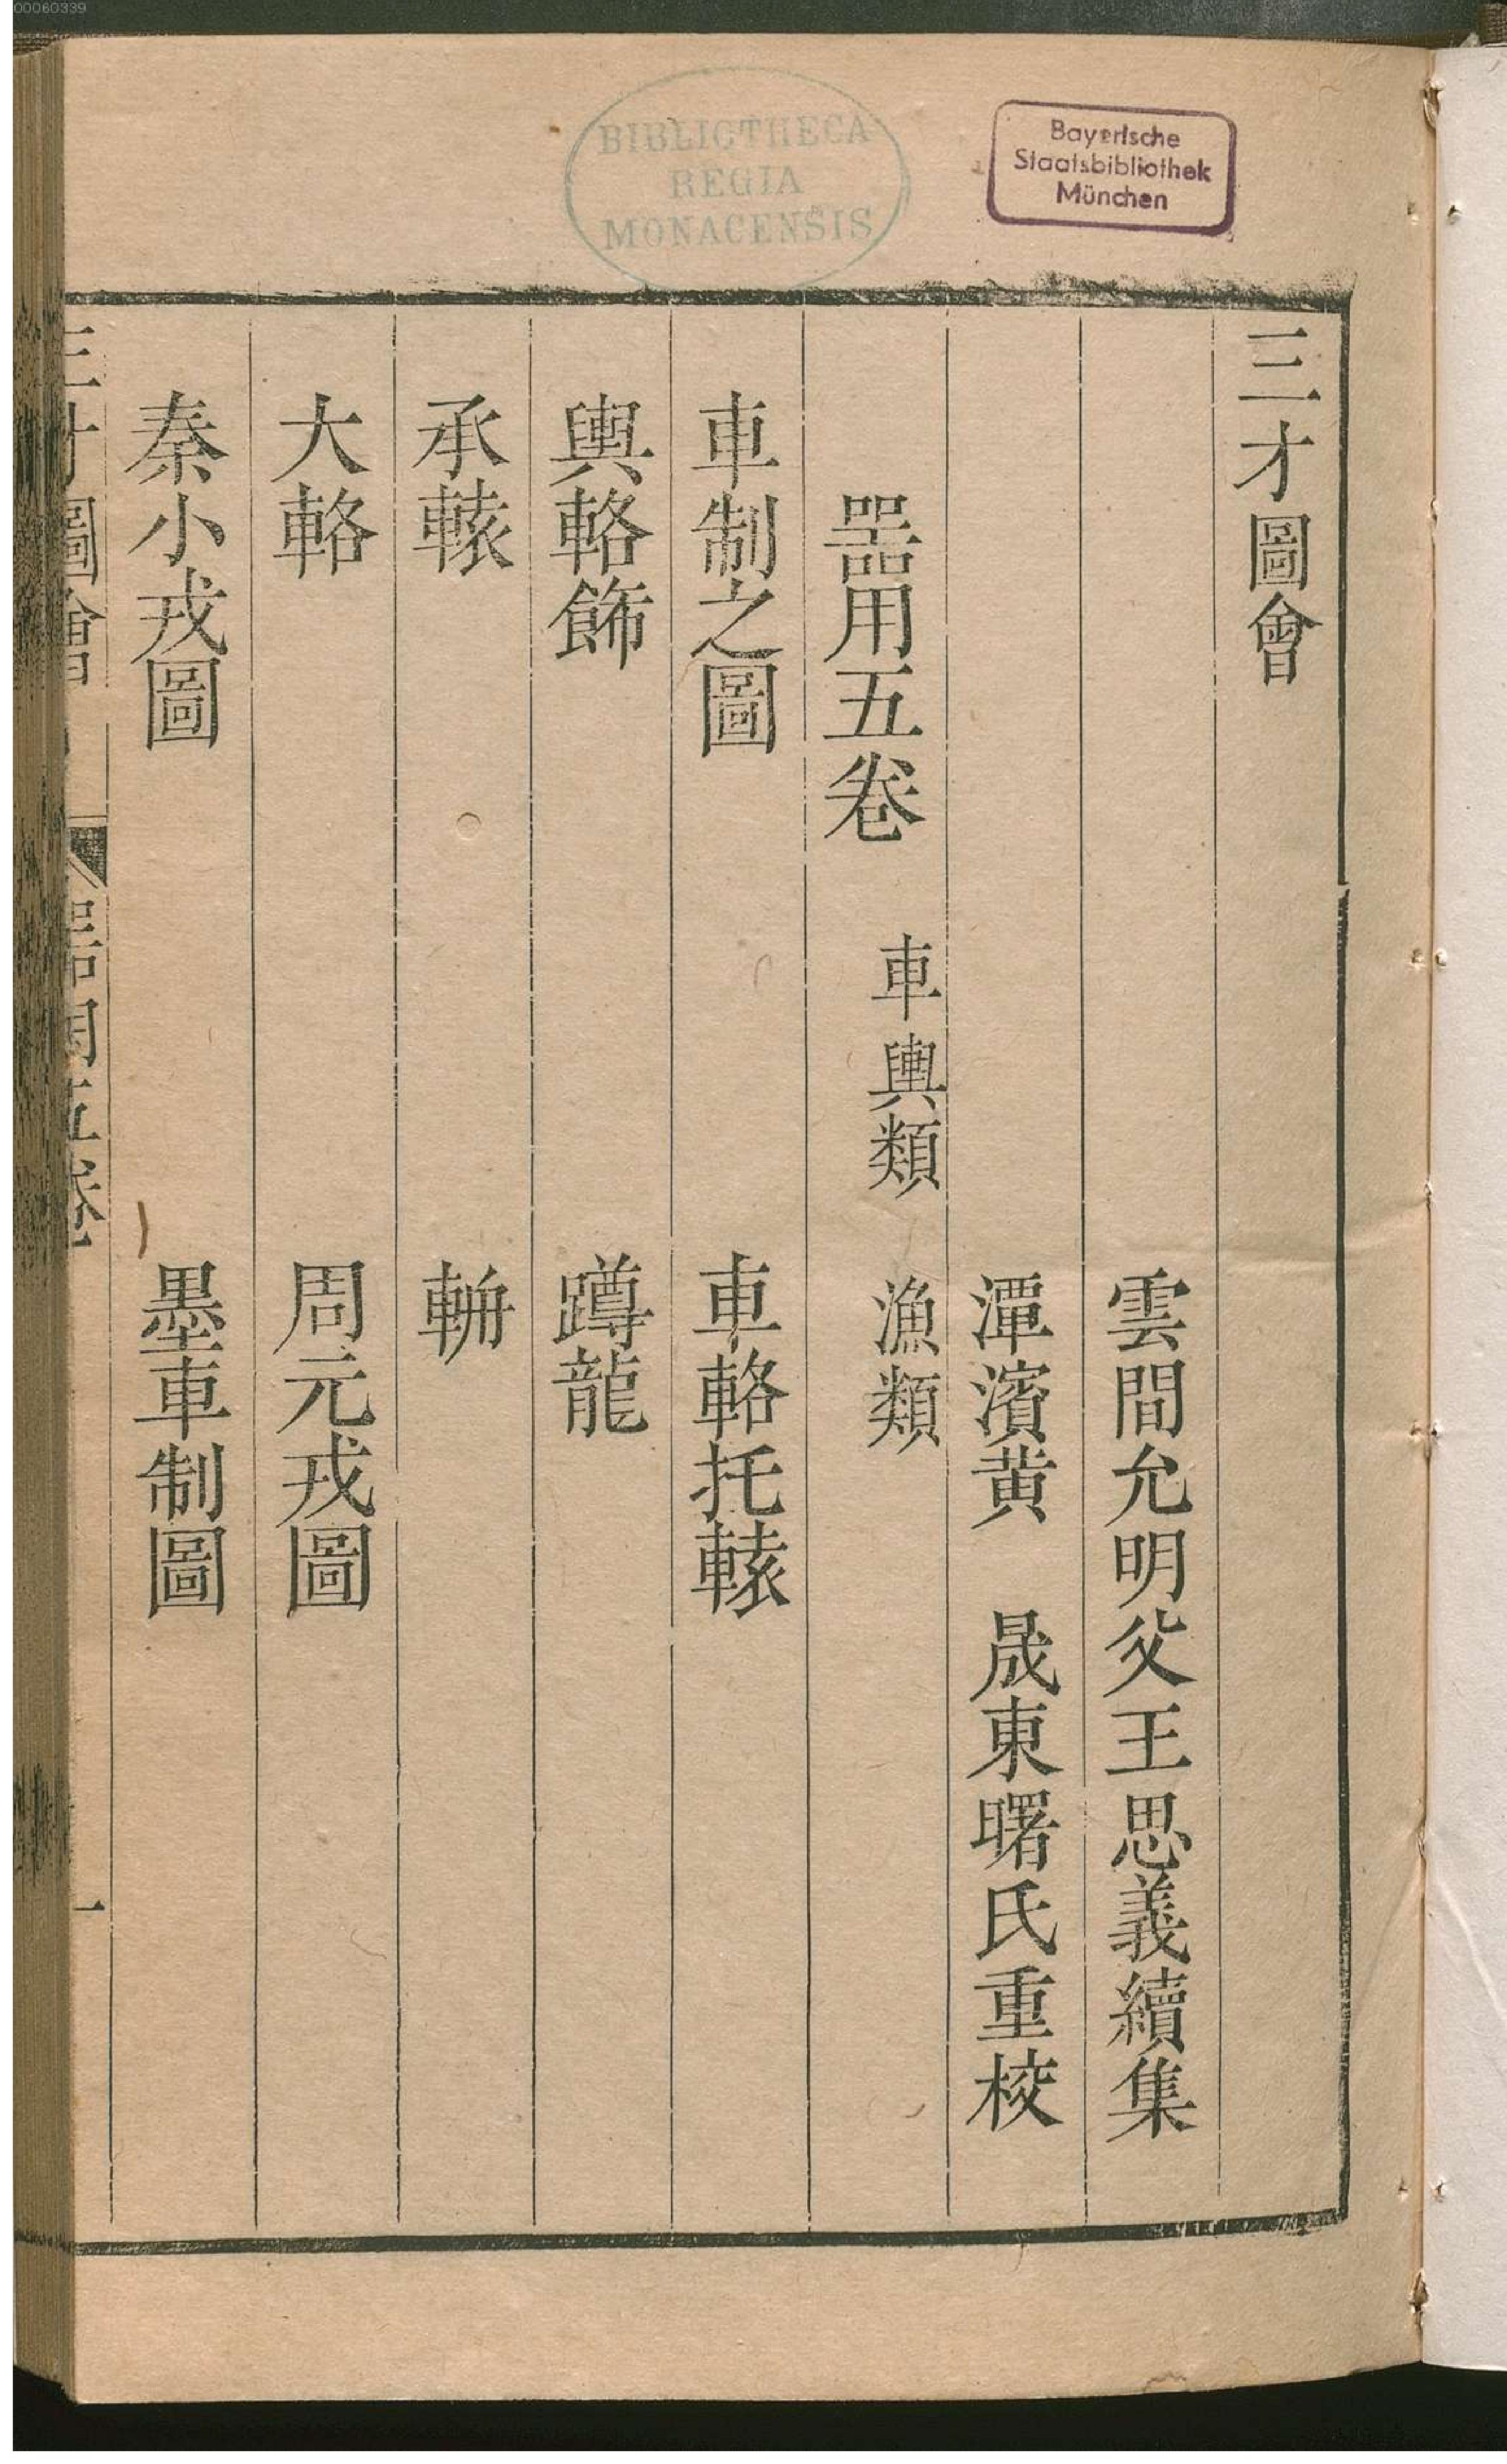 00060339
BIBLIOTHECA
REGIA
MONACENSIS
Bayerische
Staatsbibliothek
München
三才圖會
雲間允明父王思義續集
潭濱黃　晟東曙氏重校
器用五卷　車輿類　漁類
車制之圖　車輅托轅
輿輅飾　蹲龍
承轅　輧
大輅　周元戎圖
秦小戎圖　墨車制圖
三才圖會　器用五卷　一